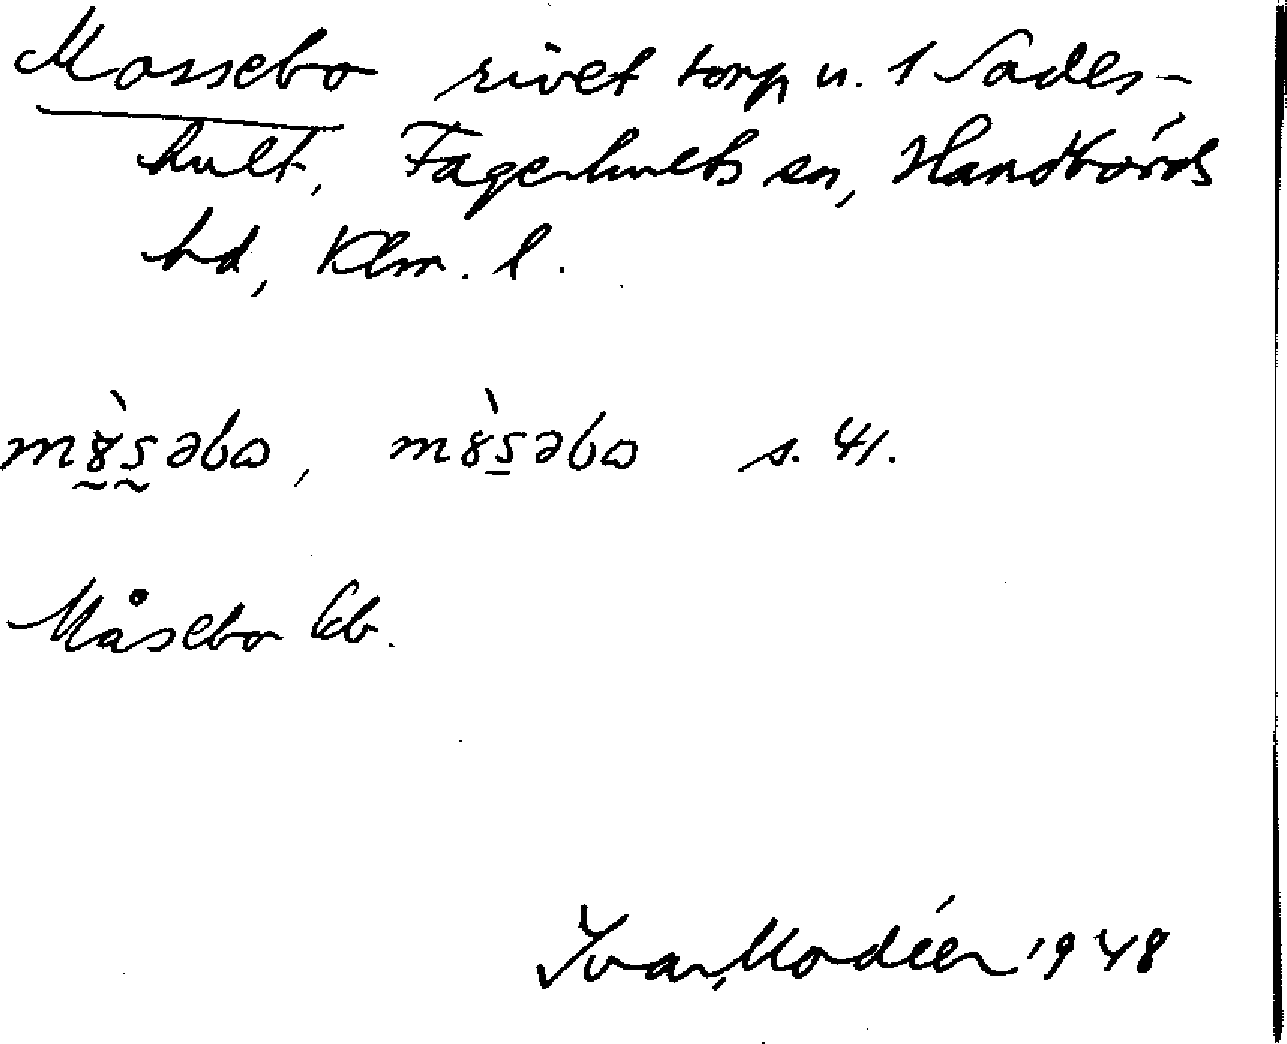 Mossebo rivet torp u. 1 Sades-
hult, Fagerhults sn, Handbörds
hd, Klm. l.
m8̀səbɷ, m8̀səbɷ s. 41.
Måsebo kb.
Ivar Modéer 1948